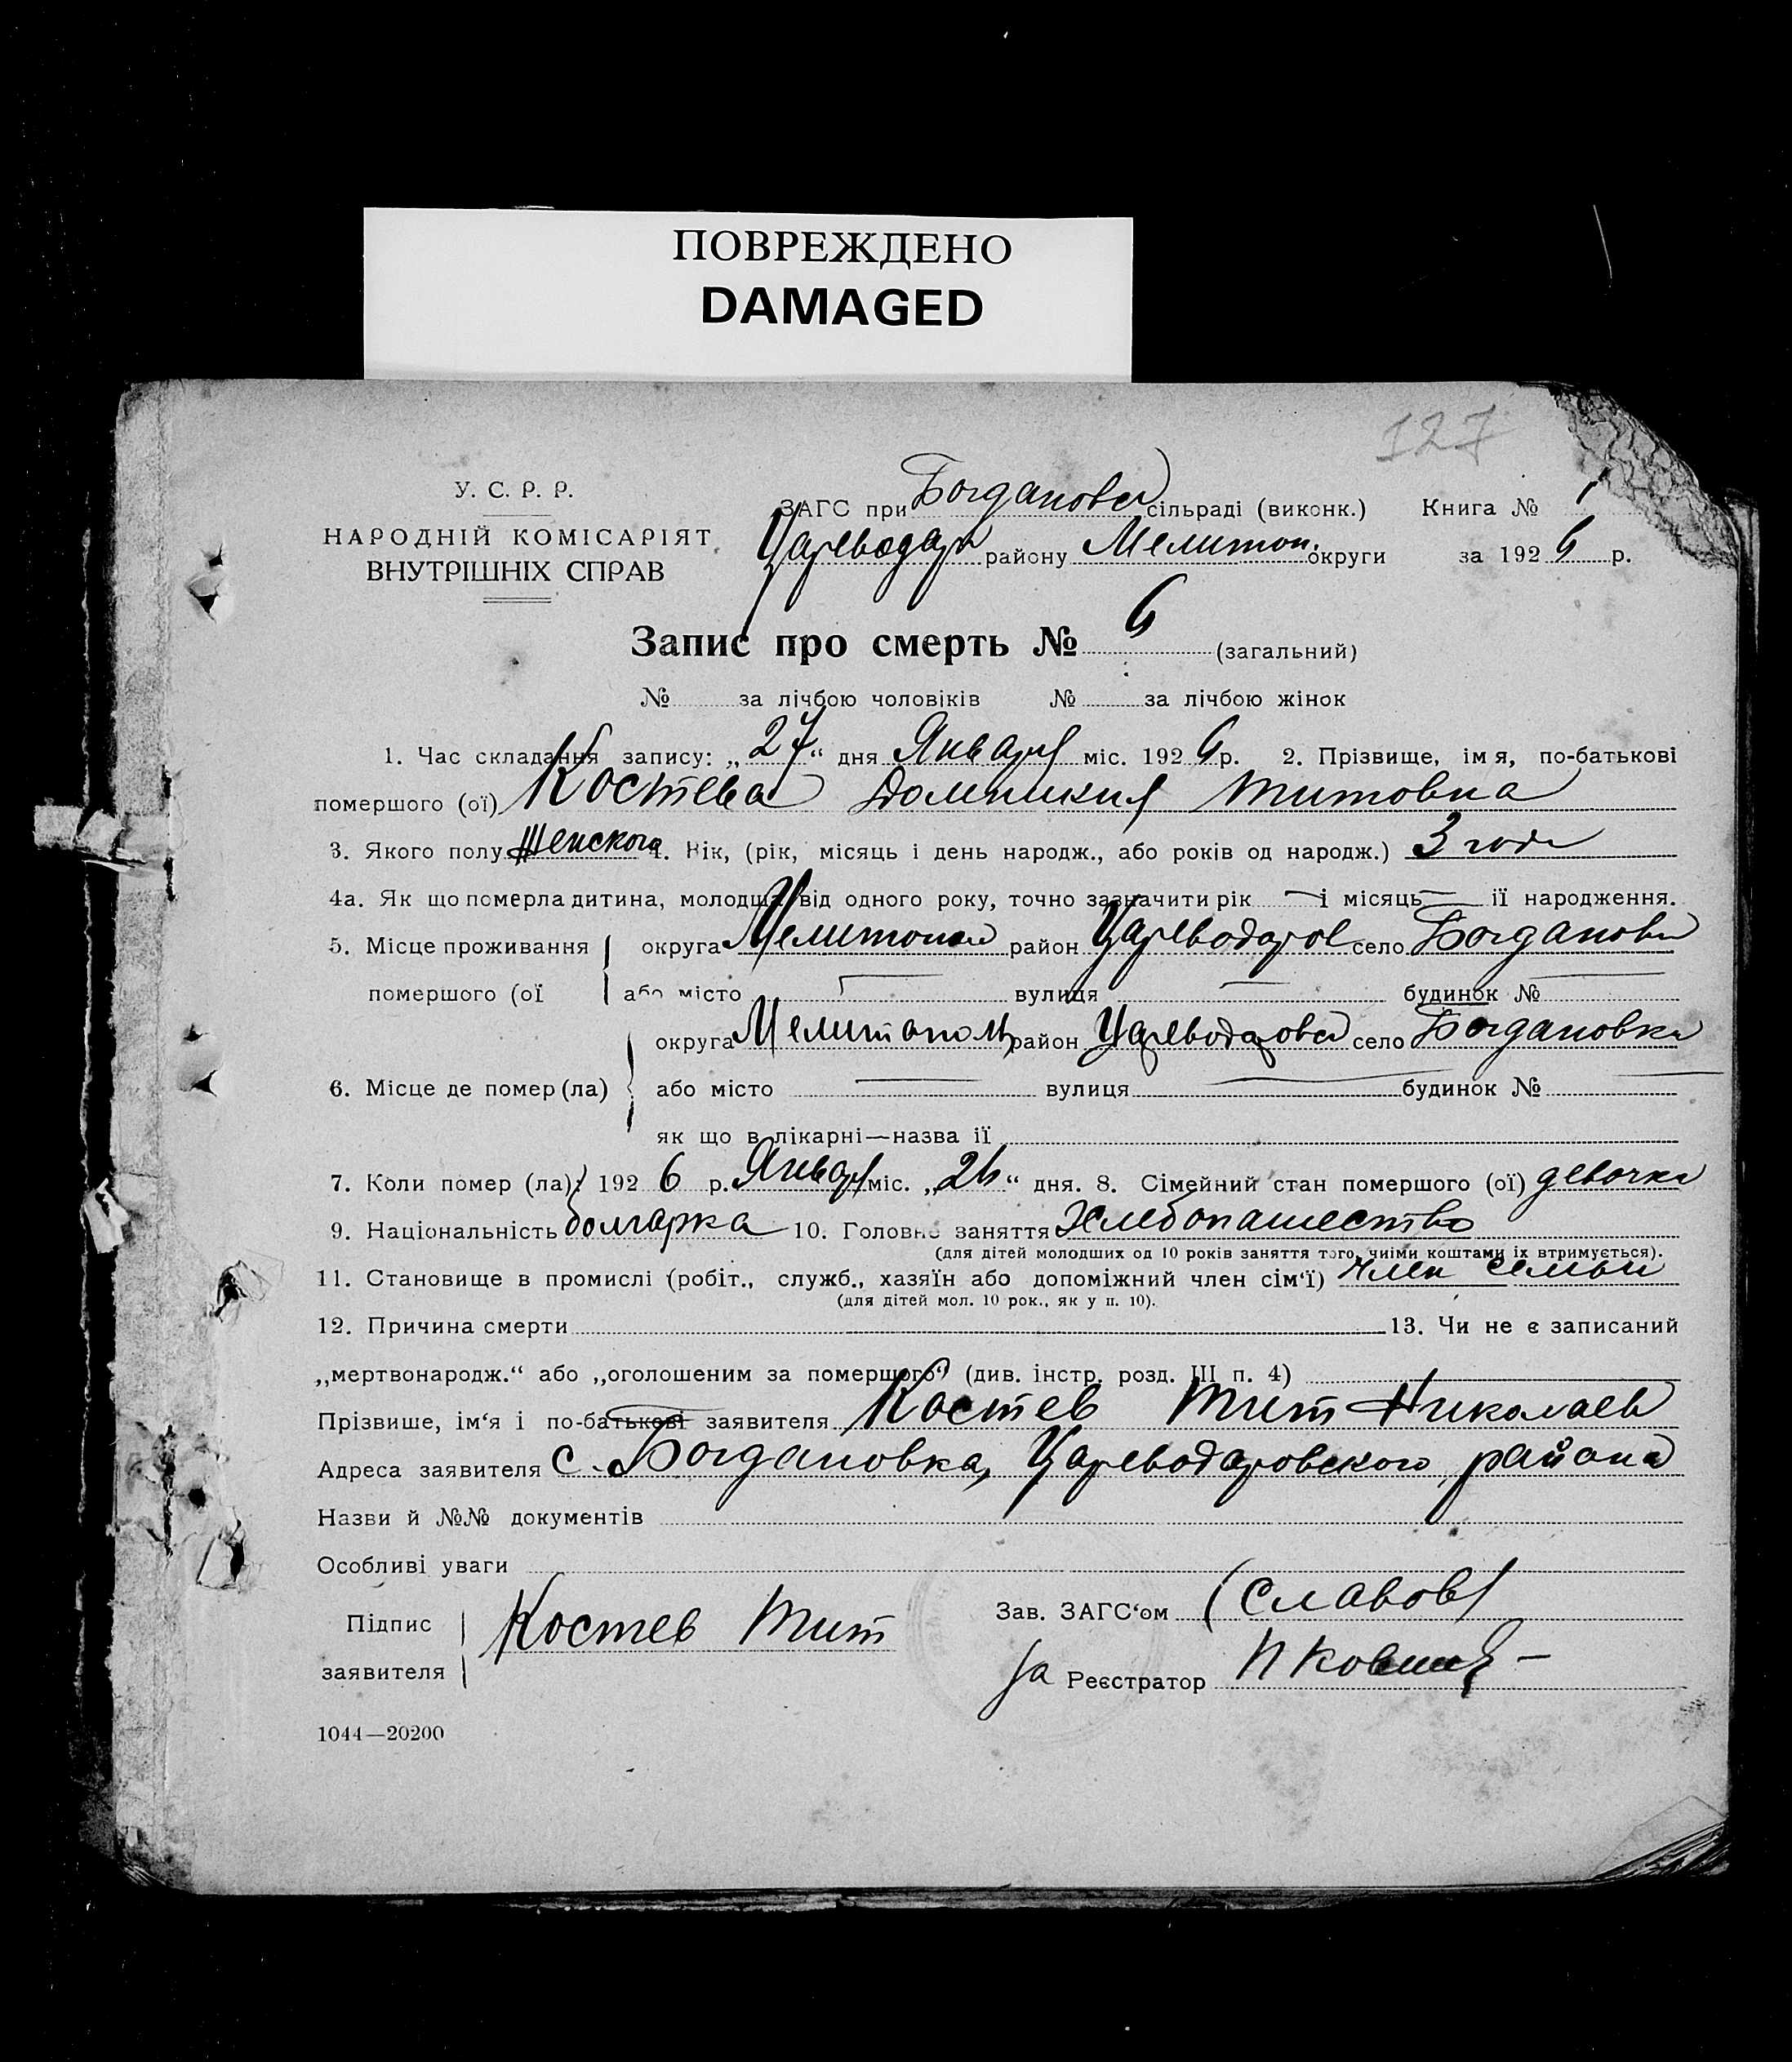 ПОВРЕЖДЕНО
DAMAGED
127
У. С. Р. Р.
НАРОДНІЙ КОМІСАРІЯТ
ВНУТРІШНІХ СПРАВ
ЗАГС при Богданов сільраді (виконк.) Книга № 1
Цареводар району Мелитоп. округи за 1926 р.
Запис про смерть № 6 (загальний)
№ за лічбою чоловіків № за лічбою жінок
1. Час складання запису: „27“ дня Января міс. 1926 р. 2. Прізвище, імя, по-батькові
помершого (ої) Костева Домникия Титовна
3. Якого полу Женского 4. Вік, (рік, місяць і день народж., або років од народж.) 3 года
4а. Як що померла дитина, молодша від одного року, точно зазначити рік — і місяць — її народження.
5. Місце проживання округа Мелитопол район Цареводаров село Богдановка
помершого (ої або місто — вулиця — будинок № —
округа Мелитополь район Цареводаров село Богдановка
6. Місце де помер (ла) або місто — вулиця — будинок № —
як що в лікарні—назва її
7. Коли помер (ла) 1926 р. Января міс. „26“ дня. 8. Сімейний стан помершого (ої) девочка
9. Національність болгарка 10. Головне заняття Хлебопашество
(для дітей молодших од 10 років заняття того, чиїми коштами їх втримується).
11. Становище в промислі (робіт., служб., хазяїн або допоміжний член сім‘ї) член семьи
(для дітей мол. 10 рок., як у п. 10).
12. Причина смерти 13. Чи не є записаний
„мертвонародж.“ або „оголошеним за помершого“ (див. інстр. розд. III п. 4)
Прізвише, ім‘я і по-батькові заявителя Костев Тит Николаев
Адреса заявителя с. Богдановка, Цареводаровского района
Назви й №№ документів
Особливі уваги
Підпис заявителя Костев Тит
Зав. ЗАГС‘ом (Славов)
За Реєстратор
1044—20200